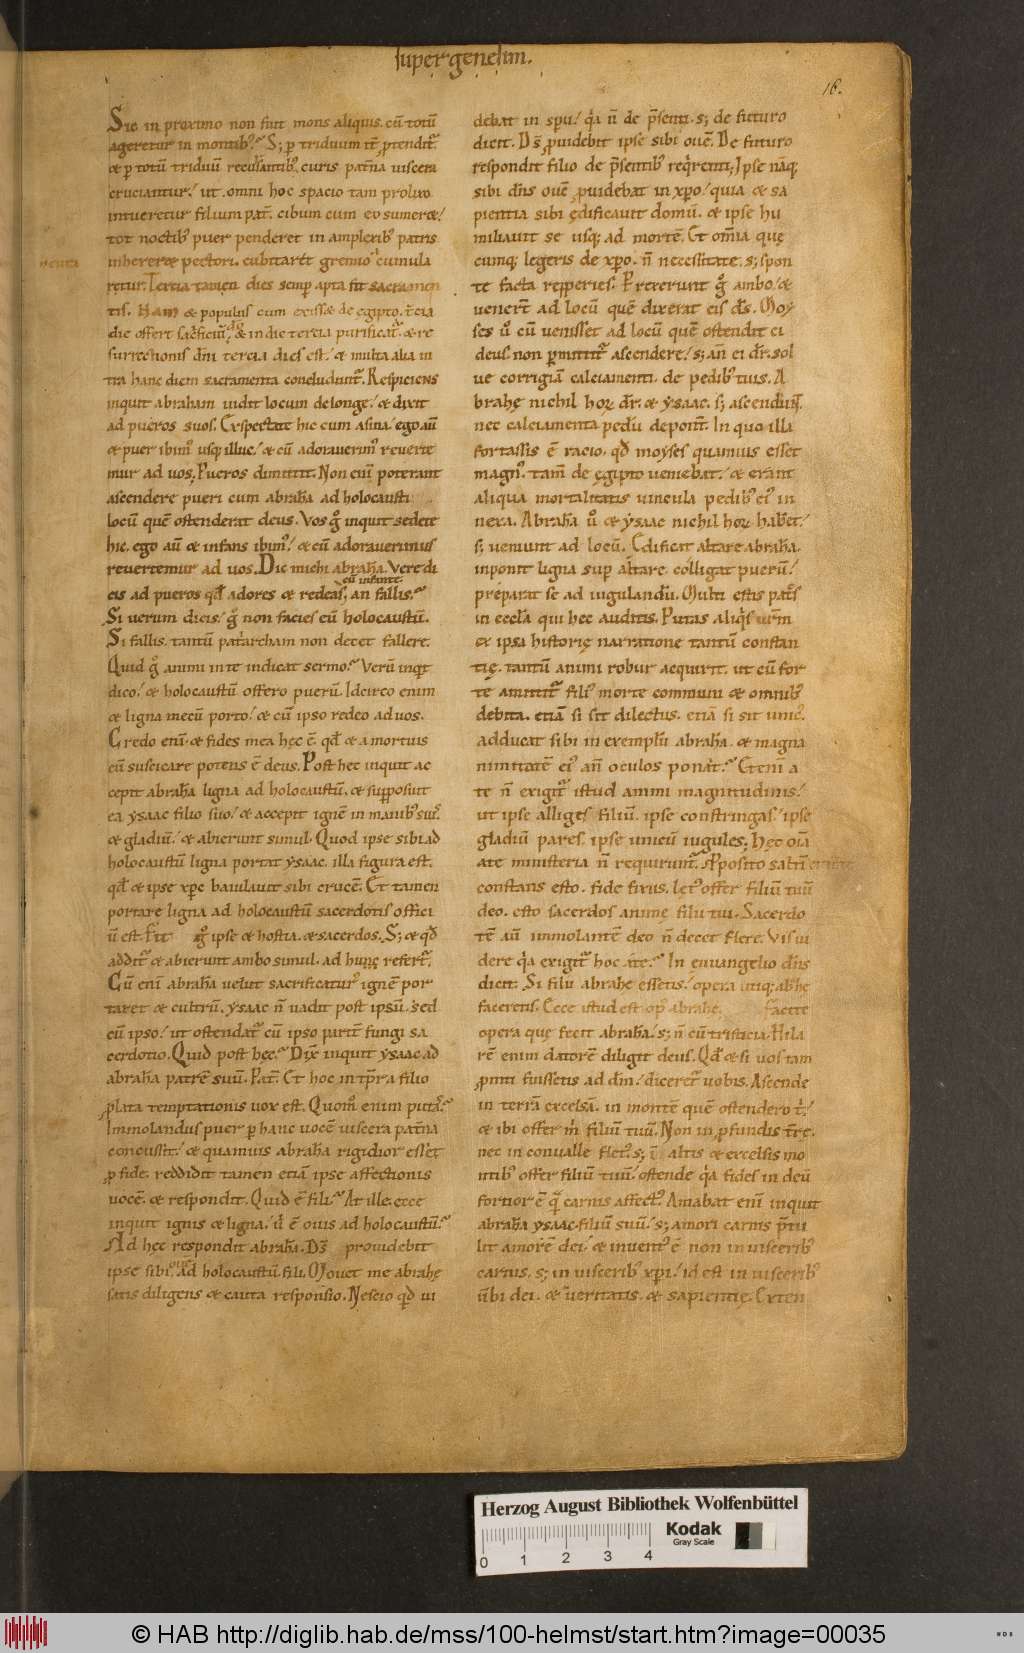 super genesim.
16.
Sic in proximo non fuit mons aliquis. cũ totũ
ageretur in montib;? S; p triduum iť ptendit.
& p totũ triduũ recursantib; curis patña viscera
cruciantur! ut omni hoc spacio tam prolixo
intueretur filium pať. cibum cum eo sumeret!
tot noctib; puer penderet in amplexib; patris
inhereret pectori. cubitaret gremio cumula
retur. Tercia tamen dies semp apta fit sacramen
tis. Nam & populus cum exisset de egipto. tcia
die offert sacrificiũ, & in die tercia purificať. & re
surrectionis dñi tercia dies est! & multa alia in
tra hanc diem sacramenta concludunť. Respiciens
inquit abraham vidit locum de longe! & dixit
ad pueros suos. Exspectate hic cum asina! ego aũ
& puer ibim; usq; illuc! & cũ adoraverim; reverte
mur ad vos. Pueros dimittit. Non enĩ poterant
ascendere pueri cum abrahã ad holocausti
locũ quẽ ostenderat deus. Vos g inquit sedete
hic. ego aũ & infans ibim;! & cũ adoraverimus
revertemur ad vos. Dic michi abrahã. Vere di
cũ infante
cis ad pueros qđ adores & redeas, an fallis?
Si verum dicis! g non facies cũ holocaustũ.
Si fallis. tantũ patriarcham non decet fallere.
Quid g animi in te indicat sermo? Verũ inqt
dico! & holocaustũ offero puerũ. Idcirco enim
& ligna mecũ porto! & cũ ipso redeo ad vos.
Credo enĩ. & fides mea hęc ẽ. qđ & a mortuis
eũ suscitare potens ẽ deus. Post hec inquit ac
cepit abrahã ligna ad holocaustũ. & supposuit
ea ysaac filio suo! & accepit ignẽ in manib; suis.
& gladiũ! & abierunt simul. Quod ipse sibi ad
holocaustũ ligna portat ysaac. illa figura est.
qđ & ipse xpc baiulavit sibi crucẽ. Et tamen
portare ligna ad holocaustũ sacerdotis offici
ũ est. Fit g ipse & hostia. & sacerdos. S; & qđ
addit & abierunt ambo simul. ad hunc refert.
Cũ enĩ abrahã velut sacrificatur; ignẽ por
taret & cultrũ. ysaac ñ vadit post ipsũ. sed
cũ ipso! ut ostendat cũ ipso paritẽ fungi sa
cerdotio. Quid post hęc? Dix inquit ysaac ad
abrahã patrẽ suũ. Pať. Et hoc in tpra filio
plata temptationis vox est. Quom enim putas?
Immolandus puer p hanc vocẽ viscera patña
concussit! & quamvis abrahã rigidior esset
p fide. reddidit tamen etiã ipse affectionis
vocẽ. & respondit. Quid ẽ fili? At ille. ecce
inquit ignis & ligna! u ẽ ovis ad holocaustũ?
Ad hęc respondit abrahã. Dš providebit
ipse sibi ovẽ ad holocaustũ fili. Movet me abrahę
satis diligens & cauta responsio. Nescio qđ vi
debat in spu! qa ñ de psenti. s; de futuro
dicit. Dš pvidebit ipse sibi ovẽ. De futuro
respondit filio de psentib; reqrenti. Ipse nãq;
sibi dñs ovẽ pvidebat in xpo! quia & sa
pientia sibi ędificavit domũ. & ipse hu
miliavit se usq; ad mortẽ. Et omĩa quę
cumq; legeris de xpo. ñ necessitate. s; spon
te facta repperies. Prexerunt g ambo! &
venert ad locũ quẽ dixerat eis dš. Moy
ses u cũ venisset ad locũ quẽ ostendit ei
deus. non pmittit ascendere! s; añ ei dr. sol
ve corrigiã calciamenti. de pedib; tuis. A
brahę nichil hor dr. & ysaac. s; ascendunt.
nec calciamenta pedũ deponit. In quo illa
fortassis ẽ racio. qđ moyses quamvis esset
magn;. tam de ęgipto veniebat! & erant
aliqua mortalitatis vincula pedib; ei; in
nexa. Abrahã u & ysaac nichil hor habet!
s; veniunt ad locũ. Edificat altare abrahã.
inponit ligna sup altare. colligat puerũ!
preparat se ad iugulandũ. Multi estis patres
in ecclĩa qui hec auditis. Putas aliqs vrm
ex ipsa historię narratione tantũ constan
tię. tantũ animi robur acquirit. ut cũ for
te amittit fili; morte communi & omnib;
debita. etiã si sit dilectus. etiã si sit unic;
adducat sibi in exemplũ abrahã. & magna
nimitatẽ ei; añ oculos ponat? Etenĩ a
te ñ exigit istud animi magnitudinis!
ut ipse alliges filiũ. ipse constringas! ipse
gladiũ pares. ipse unicũ iugules. Hęc oĩa
a te ministeria ñ requirunt. Proposito saltẽ
constans esto. fide fixus. let; offer filiũ tuũ
deo. esto sacerdos animę filii tui. Sacerdo
tẽ aũ immolantẽ deo ñ decet flere. Vis vi
dere qa exigit hoc a te? In euvangelio dñs
dicit. Si filii abrahę essetis! opera utiq; abrhę
faceretis. Ecce istud est op; abrahę. facite
opera quę fecit abrahã! s; ñ cũ tristicia. Hila
rẽ enim datorẽ diligit deus. Qđ & si vos tam
pmti fuissetis ad dm! diceret vobis. Ascende
in terrã excelsã. in montẽ quẽ ostendero t!
& ibi offer m filiũ tuũ. Non in pfundis trę.
nec in convalle flet;. s; in altis & excelsis mo
ntib; offer filiũ tuũ! ostende qa fides in deũ
fortior ẽ q carnis affect;. Amabat enĩ inquit
abrahã ysaac. filiũ suũ! s; amori carnis ptu
lit amorẽ dei! & invent; ẽ non in visceribus
carnis. s; in viscerib; xpi! id est in viscerib;
ubi dei. & veritatis. & sapientię. Exten
Herzog August Bibliothek Wolfenbüttel
Kodak
Gray Scale
0 1 2 3 4
© HAB http://diglib.hab.de/mss/100-helmst/start.htm?image=00035